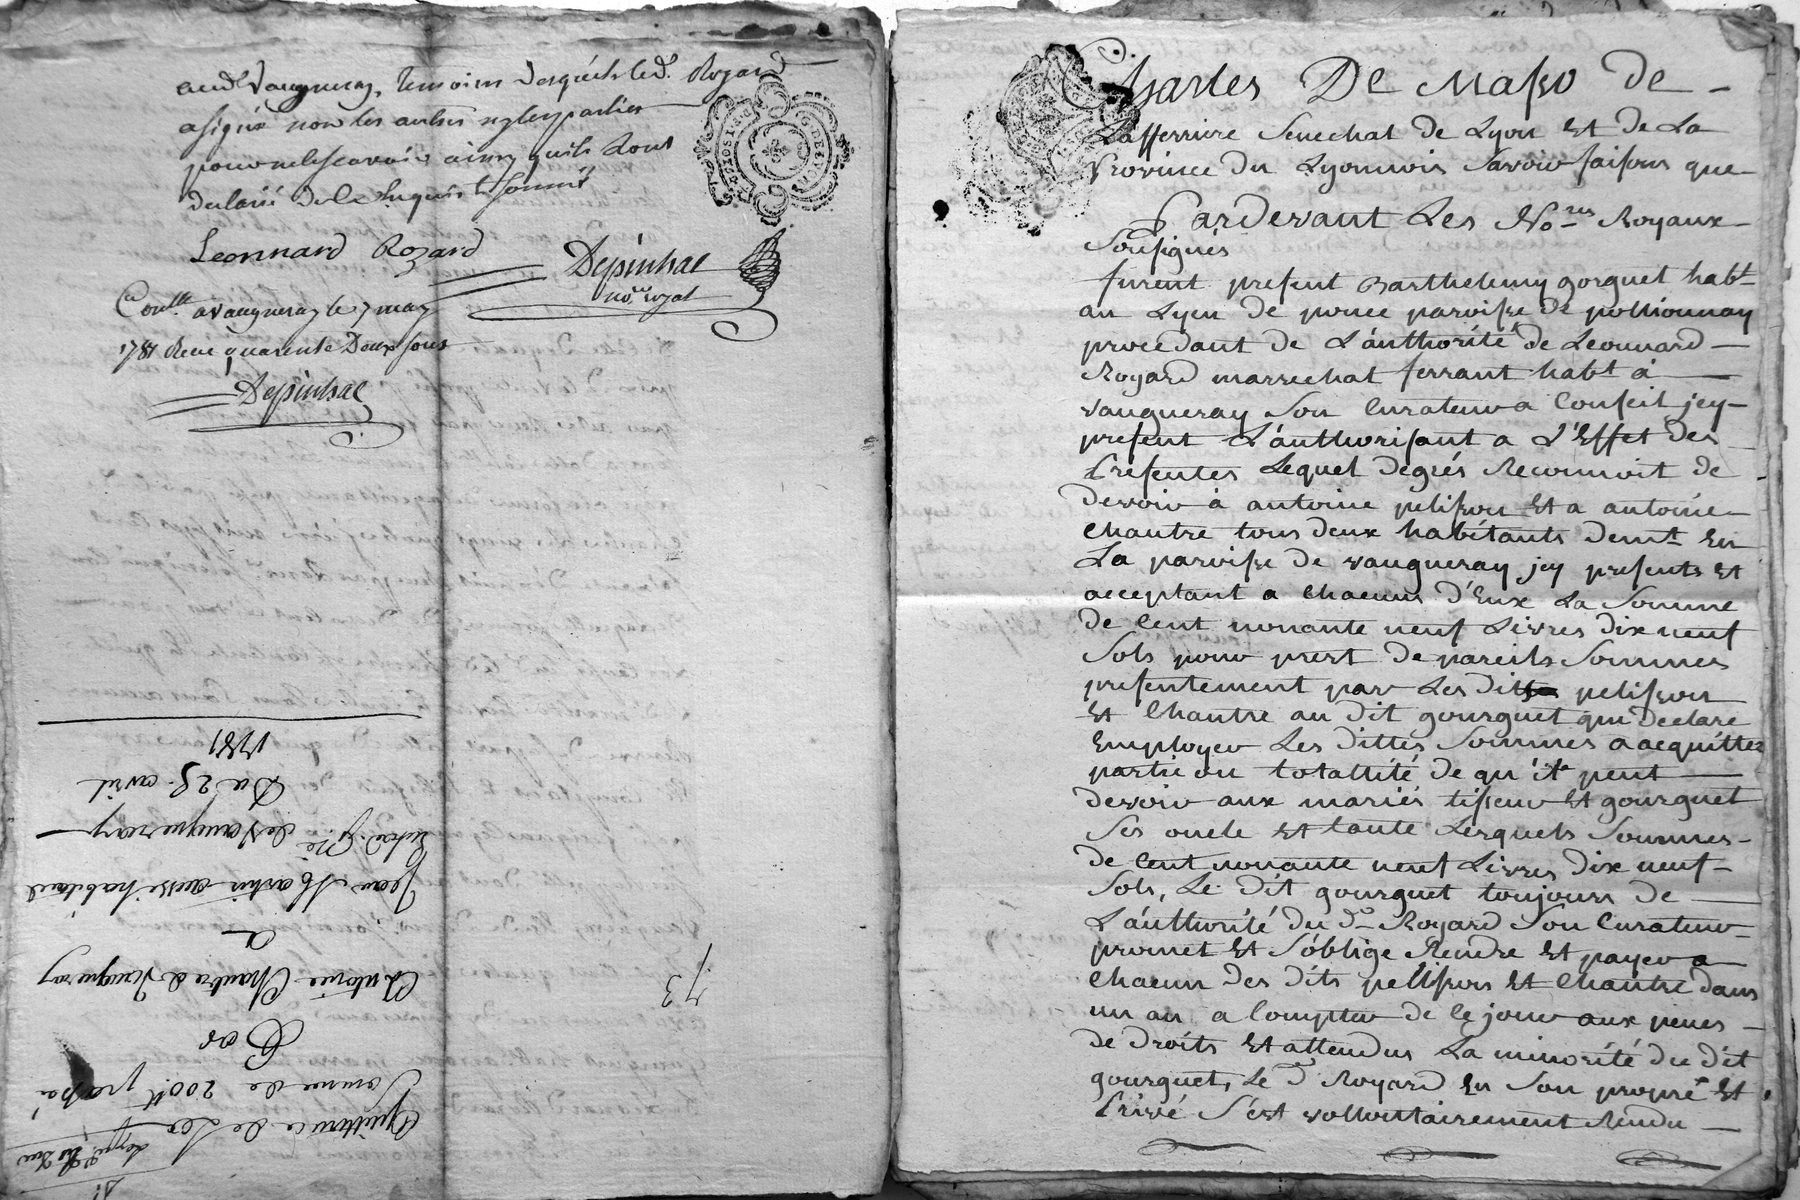 aud. Vaugneray, temoins desquels led. Rozard
a signé non les autres ny les parties
pour ne le scavoir ainsy quils l'ont
declaré de ce enquis et sommé
Leonnard Rozard
Depinhac
no.re royal
Con.lle a Vaugneray le 7 may
1781 Receu quarente Deux sous
Depinhac
73
GEN. DE LYON
DEUX SOLS
Quittance de Les
Somme de 200 ₶ passé
Par
Antoine Chantre de Vaugneray
a
Jean Martin aussi habitant
de Vaugneray
Du 25. avril
1781
Charles De Masso de
Lafferriere Senechal de Lyon Et de La
Province du Lyonnois Savoir faisons que
Pardevant Les No.res Royaux
Sousignés
furent present Barthelemy gorguet hab.t
au Lyeu de ponce paroisse de pollionnay
procedant de L'authorité de Leonnard
Rozard marrechal ferrant hab.t à
vaugneray Son Curateur a Conseil jcy
present L'authorisant a L'Effet des
Presentes Lequel degrés Reconnoit de
devoir à antoine pelisson Et a antoine
Chantre tous deux habitants dem.t En
La paroisse de vaugneray jcy presents Et
acceptant a Chacun d'Eux La Somme
de Cent nonante neuf Livres dix neuf
Sols pour prest de pareils Sommes
presentement par Les dits pelisson
Et Chantre au dit gourguet qui declare
Employer Les dittes Sommes a acquitter
partie ou totallité de qu'il peut
devoir aux mariés tisseur Et gourguet
Ses oncle Et tante Lesquels Sommes
de Cent nonante neuf Livres dix neuf
Sols, Le dit gourguet toujours de
L'authorité du d. Rozard Son Curateur
promet Et S'oblige Rendre Et payer a
Chacun des dits pellisson Et Chantre dans
un an a Compter de Ce jour aux peines
de droits Et attendus La minorité du dit
gourguet, Le d. Rozard En Son propre Et
Privé S'est vollontairement Rendu